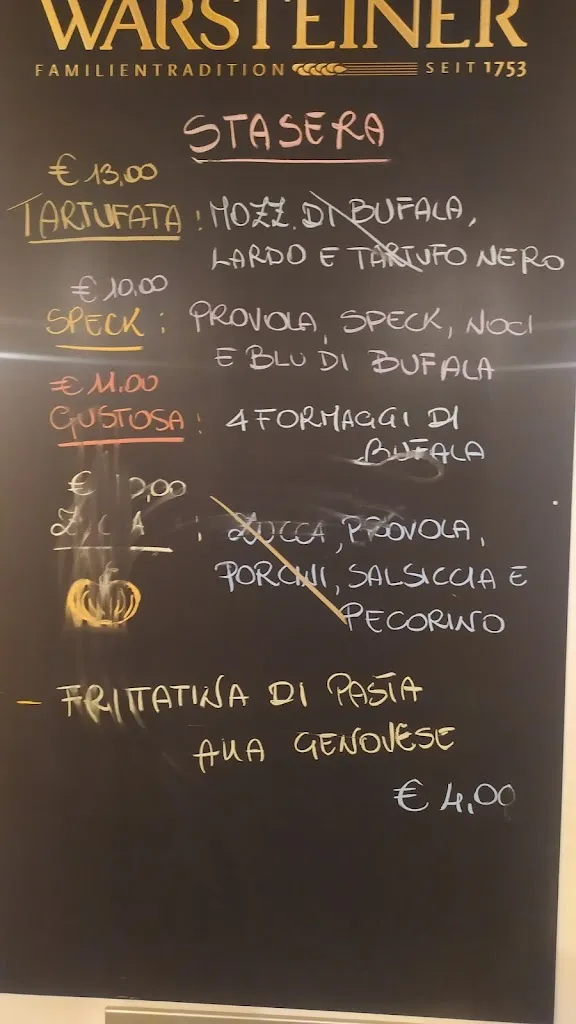 WARSTEINER
FAMILIENTRADITION SEIT 1753
STASERA
€ 13,00
TARTUFATA : MOZZ. DI BUFALA,
LARDO E TARTUFO NERO
€ 10,00
SPECK : PROVOLA, SPECK, NOCI
E BLU DI BUFALA
€ 11.00
GUSTOSA : 4 FORMAGGI DI
BUFALA
ZUCCA, PROVOLA,
PORCINI, SALSICCIA E
PECORINO
- FRITTATINA DI PASTA
ALLA GENOVESE
€ 4,00